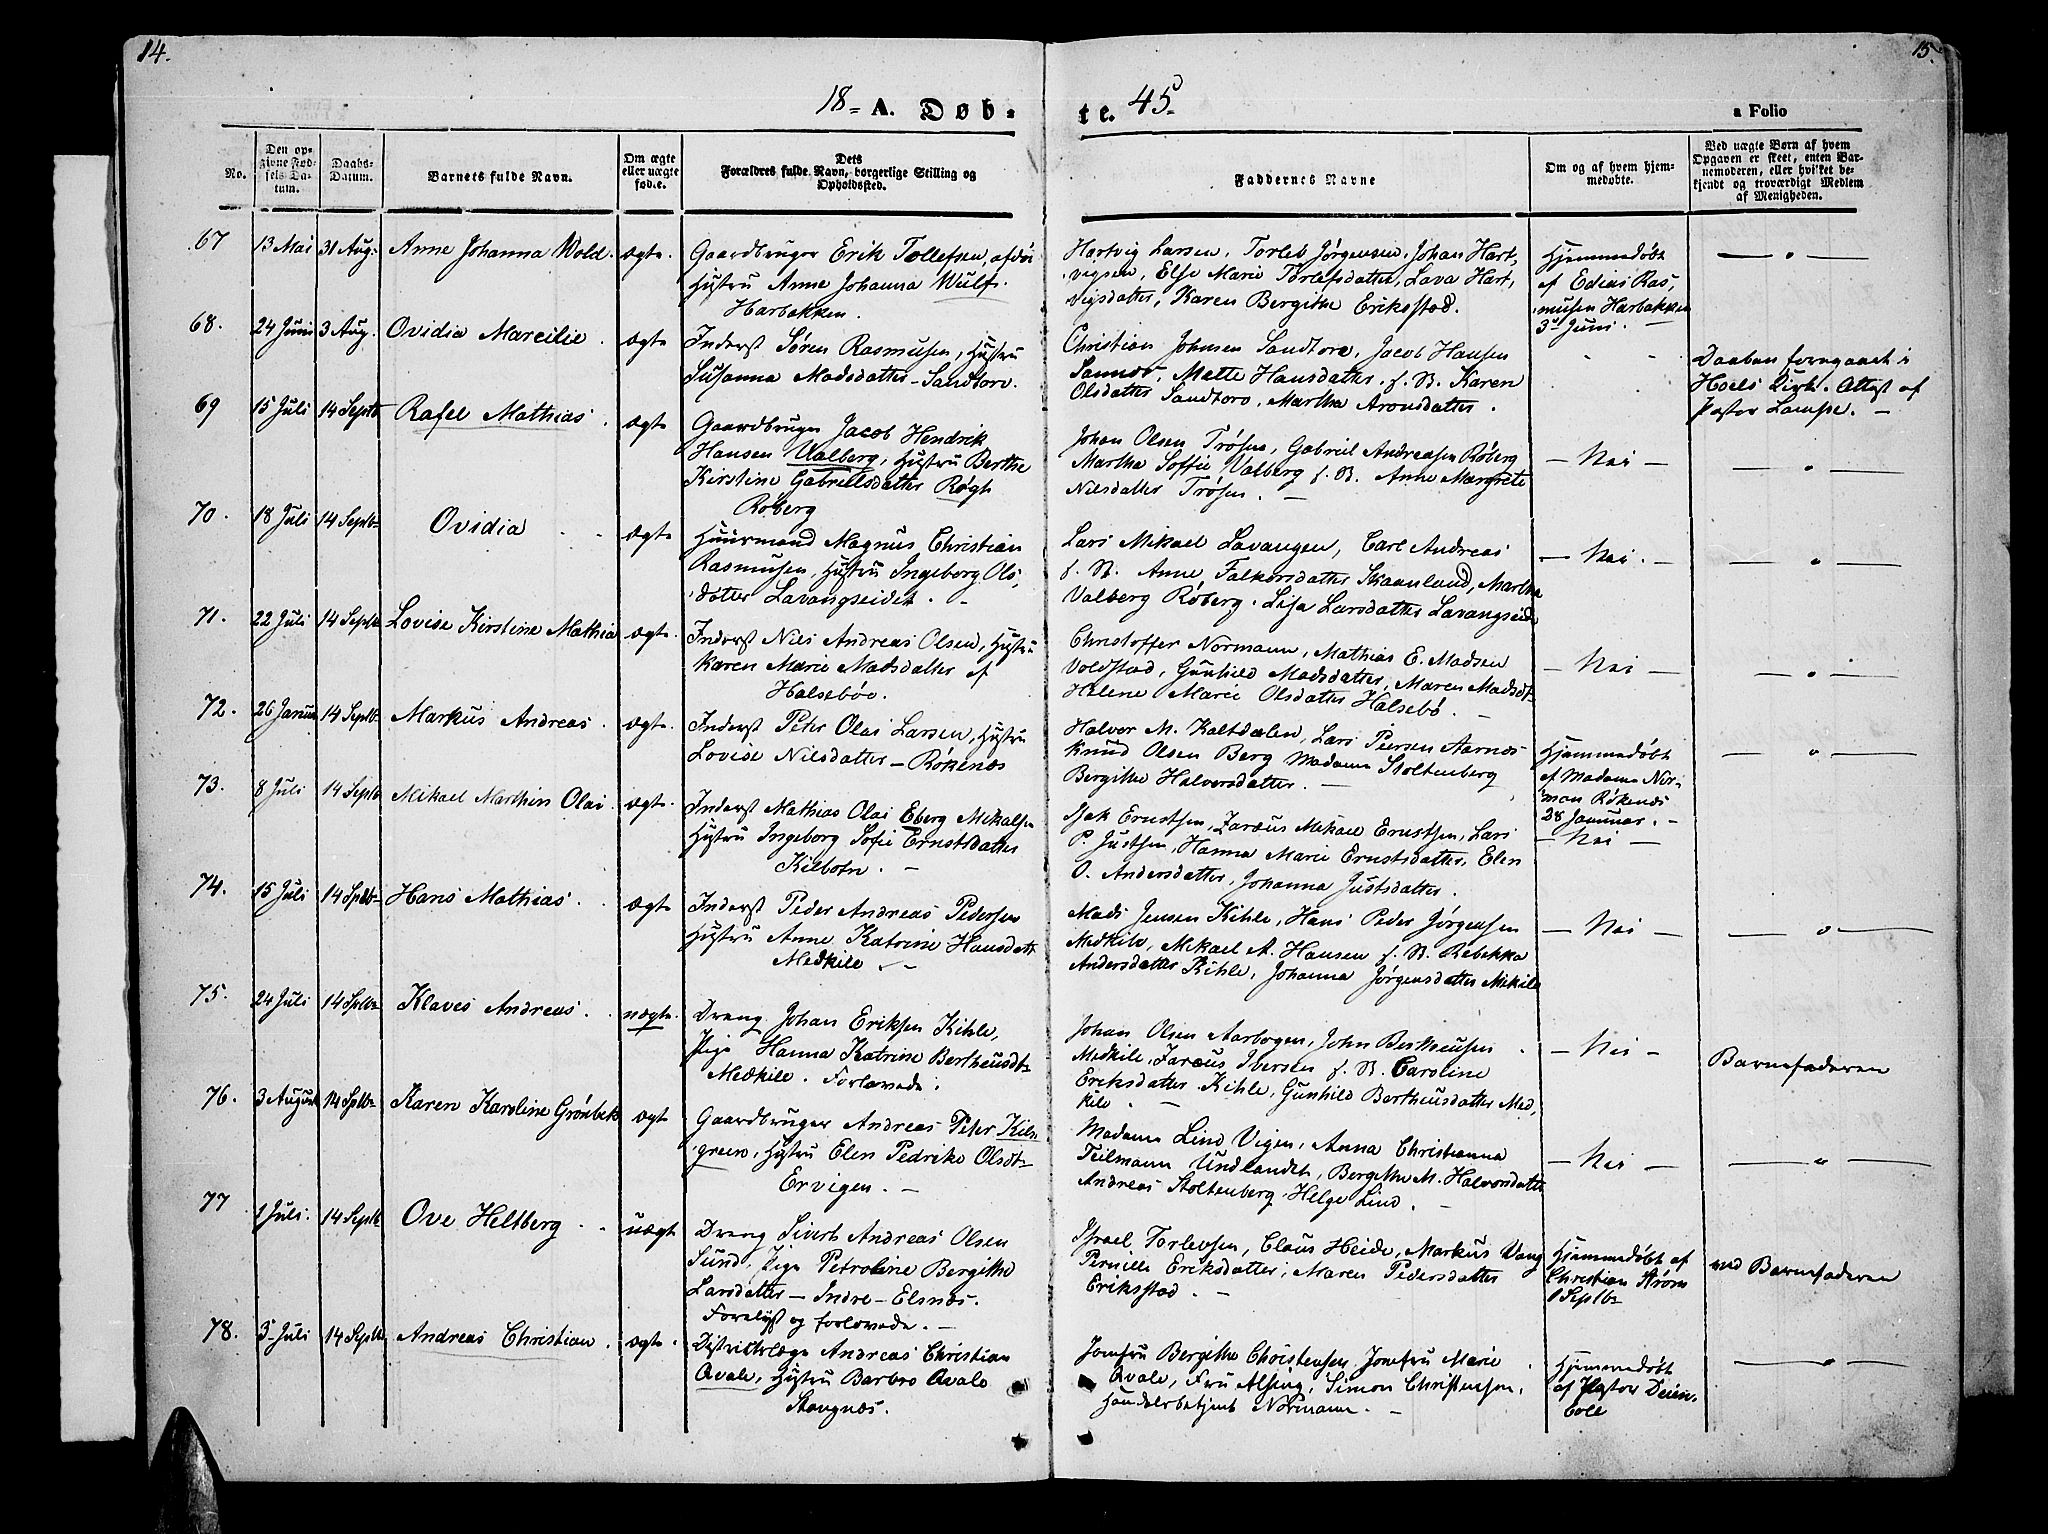 14.
15.
18- A. Døb-
te. 45.
a Folio
No.
Den op-
givne Fød-
sels Da-
tum.
Daabs-
Datum.
Barnets fulde Navn.
Om ægte
eller uægte
født.
Dets
Forældres fulde Navn, borgerlige Stilling og
Opholdssted.
Faddernes Navne
Om og af hvem hjem-
medøbte.
Ved uægte Børn af hvem
Opgaven er skeet, enten Bar-
nemoderen, eller hvilket be-
kjendt og troværdigt Medlem
af Menigheden.
67 13 Mai 31 Aug. Anne Johanna Wold. ægte.
Gaardbruger Erik Tollefsen, afdøde
Hustru Anne Johanna Wulf.
Harbakken.
Hartvig Larsen, Torleb Jørgensen, Johan Hart,
vigsen, Else Marie Torlefsdatter, Lava Hart,
vigsdatter, Karen Bergithe Eriksstad.
Hjemmedøbt
af Edias Ras,
musen Harbakken
3d Juni. —
— " —
68. 24 Juni 3 Aug. Ovidia Marcilie. ægte
Inderst Søren Rasmusen, Hustru
Susanna Madsdatter - Sandtorv.
Christian Johnsen Sandtorv, Jacob Hansen
Sannes, Mette Hansdatter, f. N. Karen
Olsdatter Sandtorv, Martha Aronsdatter.
Daaben foregaaet i
Hoels Kirk. Attest af
Pastor Lampe. —
69 15 Juli 14 Septb Rafel Mathias. ægte
Gaardbruger Jacob Hendrik
Hansen Valberg, Hustru Berthe
Kirstine Gabrielsdatter Røgh
Røberg
Johan Olsen Trøsen, Gabriel Andreasen Røberg
Martha Soffie Valberg f. N. Anne Margrete
Nilsdatter Trøsen. —
— Nei —
— " —
70. 18 Juli 14 Septb- Ovidia ægte
Huusmand Magnus Christian
Rasmusen, Hustru Ingeborg Ols,
datter Lavangseidet. -
Lars Mikael Lavangen, Carl Andreas
f. N. Anne Falkorsdatter Skaanland, Martha
Valberg Røberg. Lisa Larsdatter Lavangseid
— Nei. —
— " —
71. 22 Juli 14 Septb Lovise Kirstine Mathia ægte.
Inderst Nils Andreas Olsen, Hustru
Karen Marie Madsdatter af
Halsebøe.
Christoffer Normann, Mathias E. Madsen
Voldstad, Gunhild Madsdatter, Maren Madsdt-
Helene Marie Olsdatter Halsebø. —
— Nei —
— " —
72. 26 Januar 14 Septb- Markus Andreas. ægte.
Inderst Peter Olai Larsen, Hustru
Lovise Nilsdatter - Røkenæs
Halvor M. Kaltdalen, Lars Piersen Aarnæs
Knud Olsen Berg Madame Stoltenberg
Bergithe Halversdatter. —
Hjemmedøbt
af Madame Nor-
man Røkenæs
28 Januar. -
— " —
73. 8 Juli 14 Septb Mikael Marthin Olai. ægte.
Inderst Mathias Olai Eberg Mekalsen
Hustru Ingeborg Sofie Ernstsdatter
Kilbotn. —
Isak Ernstsen, Zaræus Mekael Ernstsen, Lars
P. Justsen, Hanna Marie Ernstsdatter, Elen
O. Andersdatter, Johanna Justsdatter.
— Nei —
74. 15 Juli 14 Septb- Hans Mathias. ægte
Inderst Peder Andreas Pedersen
Hustru Anne Katrine Hansdatt
Medkile. —
Mads Jensen Kihle, Hans Peder Jørgensen
Medkile, Mekael A. Hansen f. N. Rebekka
Andersdatter Kihle, Johanna Jørgensdatter Mekile
— Nei —
— " —
75. 24 Juli 14 Septb- Klaves Andreas. uægte.
Dreng Johan Eriksen Kihle,
Pige Hanna Katrine Bertheusdt-
Medkile. Forlovede.
Johan Olsen Aarbogen, John Bertheusen
Medkile, Zaræus Iversen f. N. Caroline
Eriksdatter Kihle, Gunhild Bertheusdatter Med,
kile. —
— Nei —
Barnefaderen
76. 3 August 14 Septb- Karen Karoline Grønbek ægt
Gaardbruger Andreas Peter Kils
green, Hustru Elen Pedrike Olsdt-
Ervigen. —
Madame Lind Vigen, Anna Christianna
Teilmann Undlandet, Bergithe M. Halvorsdatter
Andreas Stoltenberg, Helge Lind. —
— Nei —
— " —
77 1 Juli. 14 Septb Ove Heltberg. uægt
Dreng Sivert Andreas Olsen
Sund, Pige Petroline Bergithe
Larsdatter — Indre - Elsnæs.
Forelyst og forlovede. —
Israel Torlevsen, Claus Heide, Markus Vang
Pernille Eriksdatter, Maren Pedersdatter
Eriksstad. —
Hjemmedøbt af
Christian Strøm
1 Septb-
ved Barnefaderen
78. 5- Juli 14 Septb Andreas Christian. ægte.
Districtslæge Andreas Christian
Qvale, Hustru Barbro Qvale
Stangnæs.
Jomfru Bergithe Christensen, Jomfru Marie
Qvale, Fru Alsing, Simon Christensen,
Handelsbetjent Normann. —
Hjemmedøbt
af Pastor Deinn-
boll
— " —